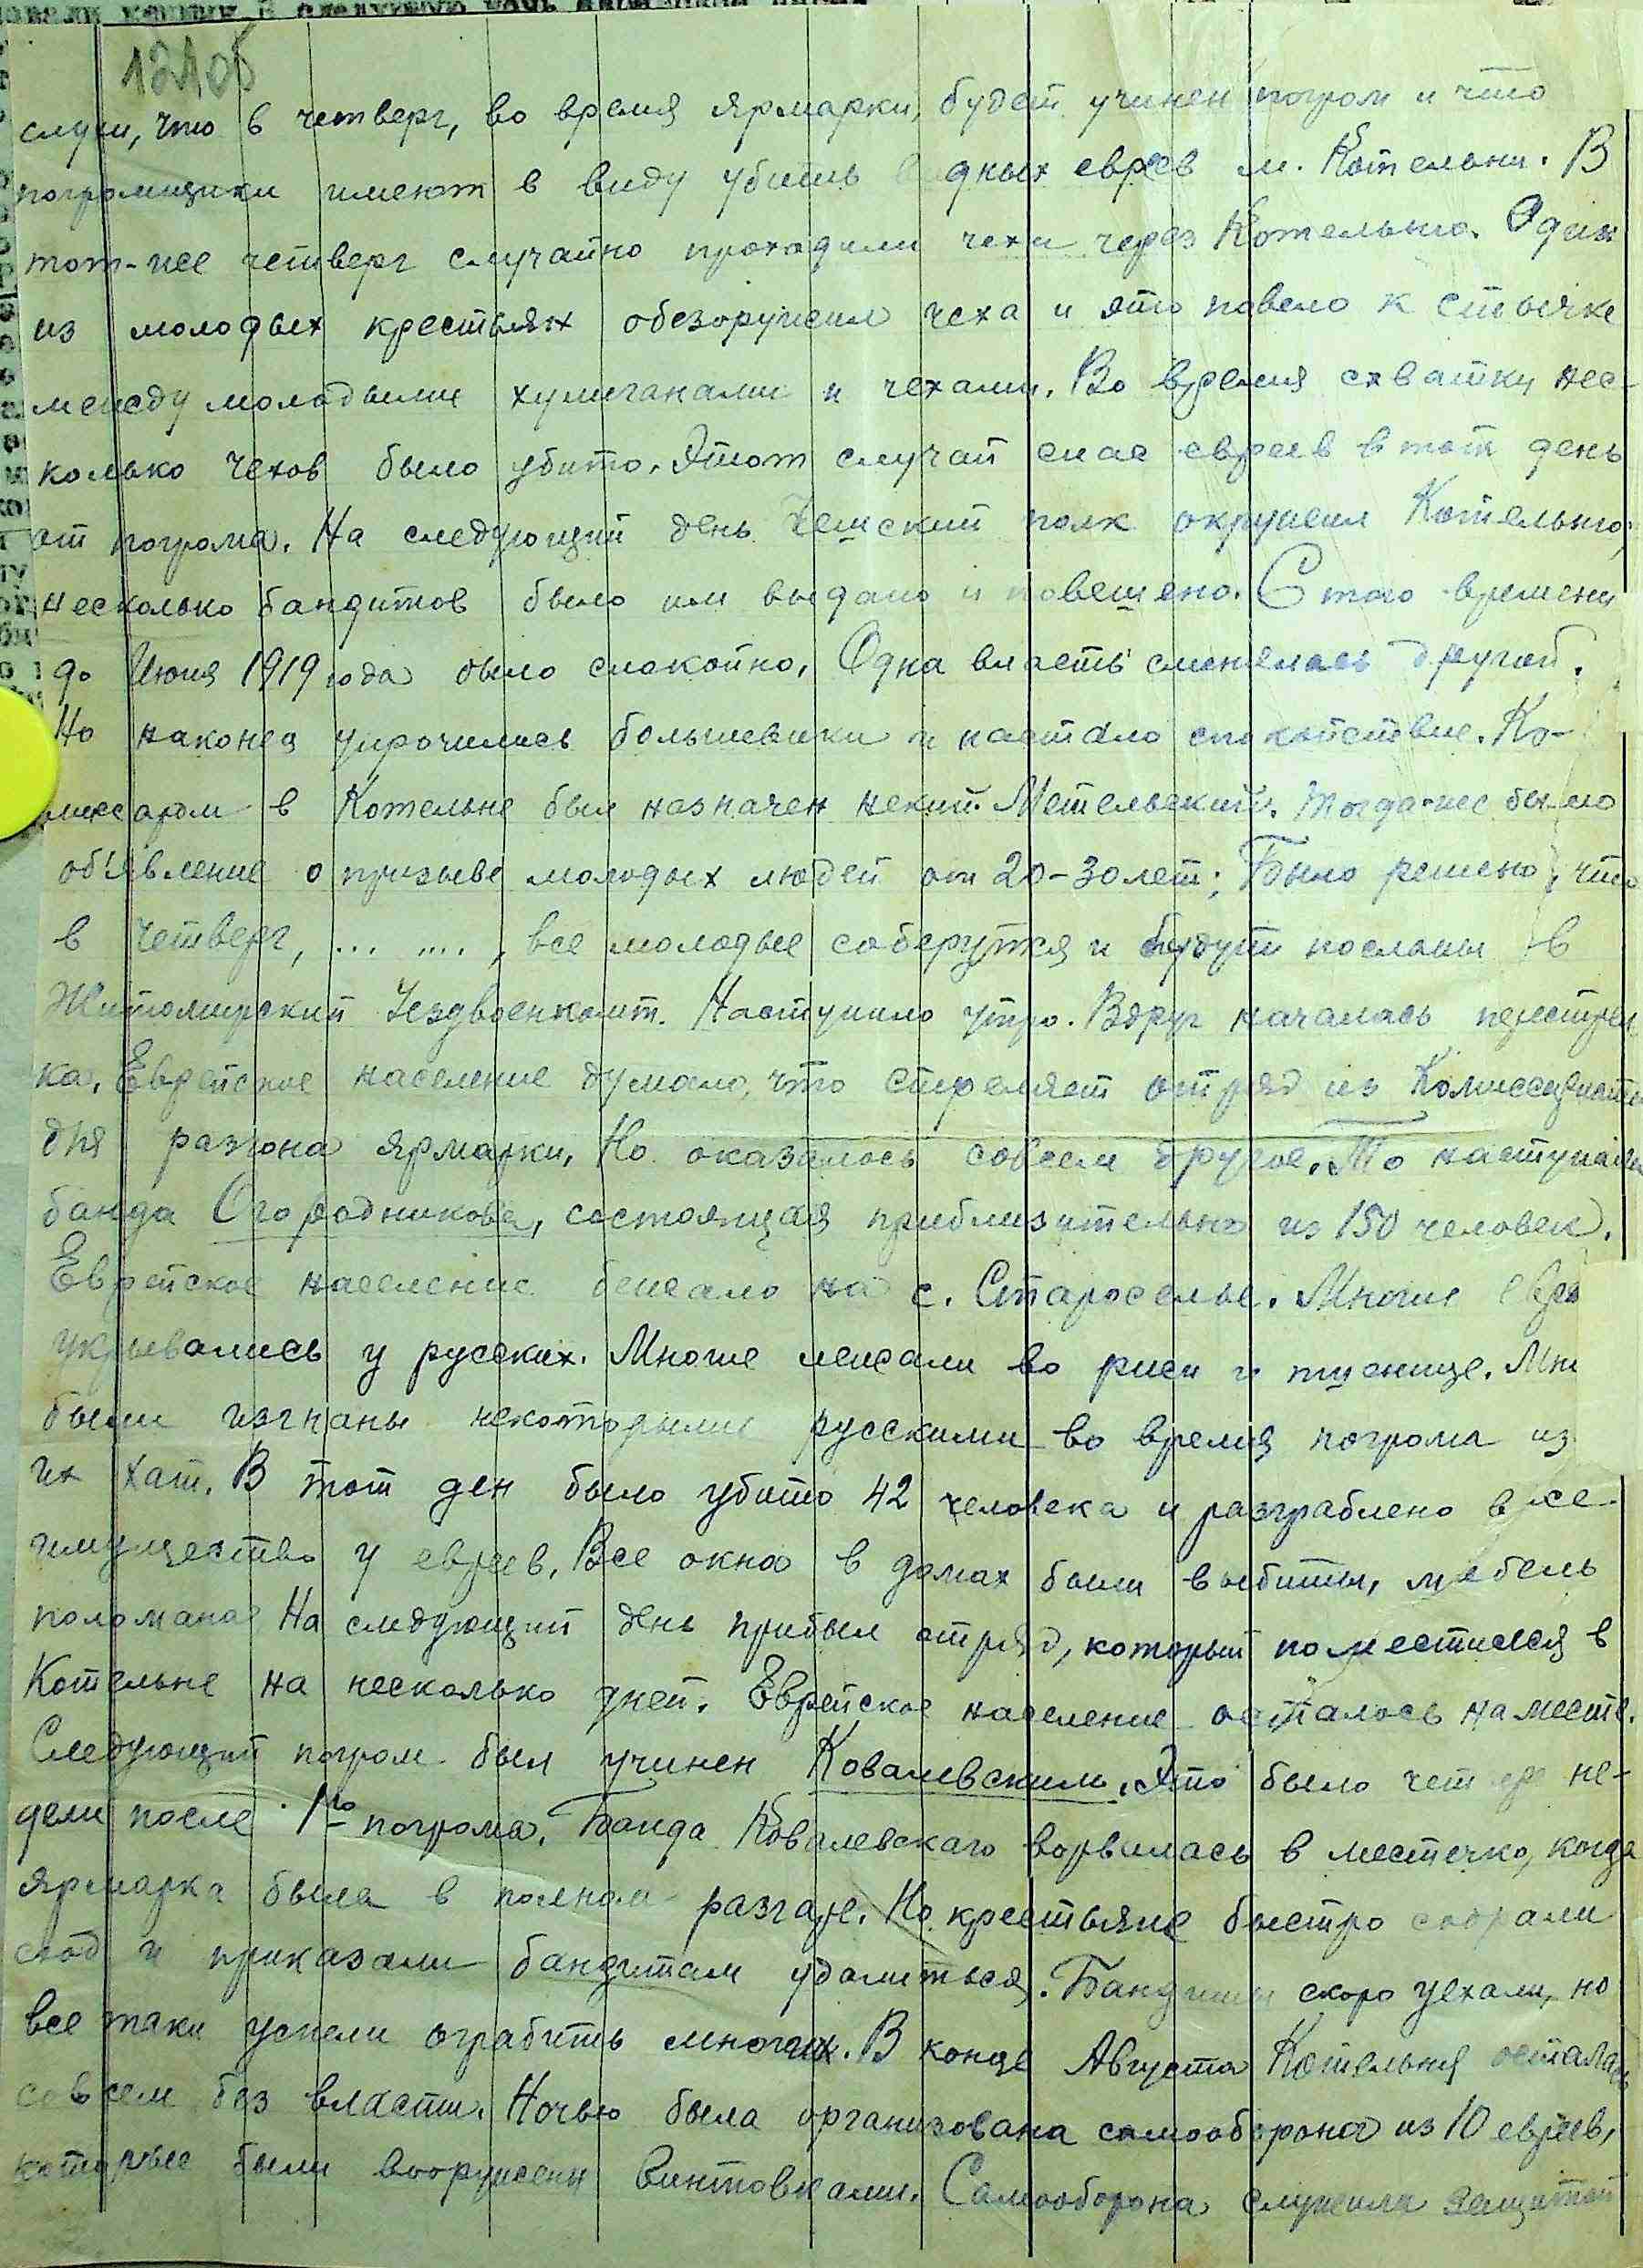 121об
слухи, что в четверг, во время ярмарки, будет учинен погром и что
погромщики имеют в виду убить бедных евреев м. Котельни. В
тот-же четверг случайно проходили чехи через Котельню. Один
из молодых крестьян обезоружил чеха и это повело к стычке
между молодыми хулиганами и чехами. Во время схватки нес-
колько чехов было убито. Этот случай спас евреев в тот день
от погрома. На следующий день Чешский полк окружил Котельню,
несколько бандитов было им выдано и повешено. С того времени
до Июня 1919 года было спокойно. Одна власть сменялась другой.
Но наконец упрочились большевики и настало спокойствие. Ко-
миссаром в Котельне был назначен некий Метельский. Тогда-же было
об'явление о призыве молодых людей от 20-30 лет; Было решено, что
в четверг, ... ...., все молодые соберутся и будут посланы в
Житомирский Уездвоенкомт. Наступило утро. Вдруг началась перестрел
ка. Еврейское население думало, что стреляет отряд из Комиссариата
для разгона ярмарки. Но оказалось совсем другое. То наступала
банда Огородникова, состоящая приблизительно из 150 человек.
Еврейское население бежало на с. Староселье. Многие евреи
укрывались у русских. Многие лежали во ржи и пшенице. Мн
были изгнаны некоторыми русскими во время погрома из
их хат. В тот ден было убито 42 человека и разграблено все
имущество у евреев. Все окна в домах были выбиты, мебель
поломана. На следующий день прибыл отряд, который поместился в
Котельне на несколько дней. Еврейское население осталось на месте.
Следующий погром был учинен Ковалевским. Это было четыре не-
дели после 1го погрома. Банда Ковалевскаго ворвилась в местечко, когда
ярмарка была в полном разгаре. Но крестьяне быстро собрали
сход и приказали бандитам удалиться. Бандиты скоро уехали, но
все таки успели ограбить многих. В конце Августа Котельня осталась
совсем без власти. Ночью была организована самооборона из 10 евреев,
которые были вооружены винтовками. Самооборона служила защитой